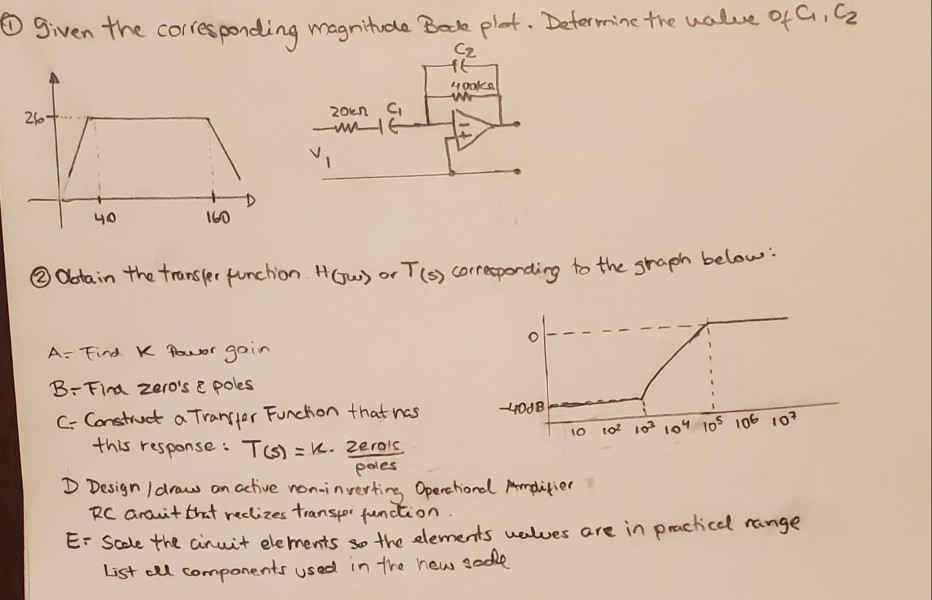 ① Given the corresponding magnitude Bode plot. Determine the value of C1, C2
C2
400kΩ
20kΩ C1
V1
26
40 160
② Obtain the transfer function H(jω) or T(s) corresponding to the graph below:
A- Find K Power gain
B- Find zero's & poles
C- Construct a Transfer Function that has
this response: T(s) = K. zero's
poles
0
-40dB
10 10² 10³ 10⁴ 10⁵ 10⁶ 10⁷
D Design/draw an active non-inverting Operational Amplifier
RC circuit that realizes transfer function.
E- Scale the circuit elements so the elements values are in practical range
List all components used in the new scale